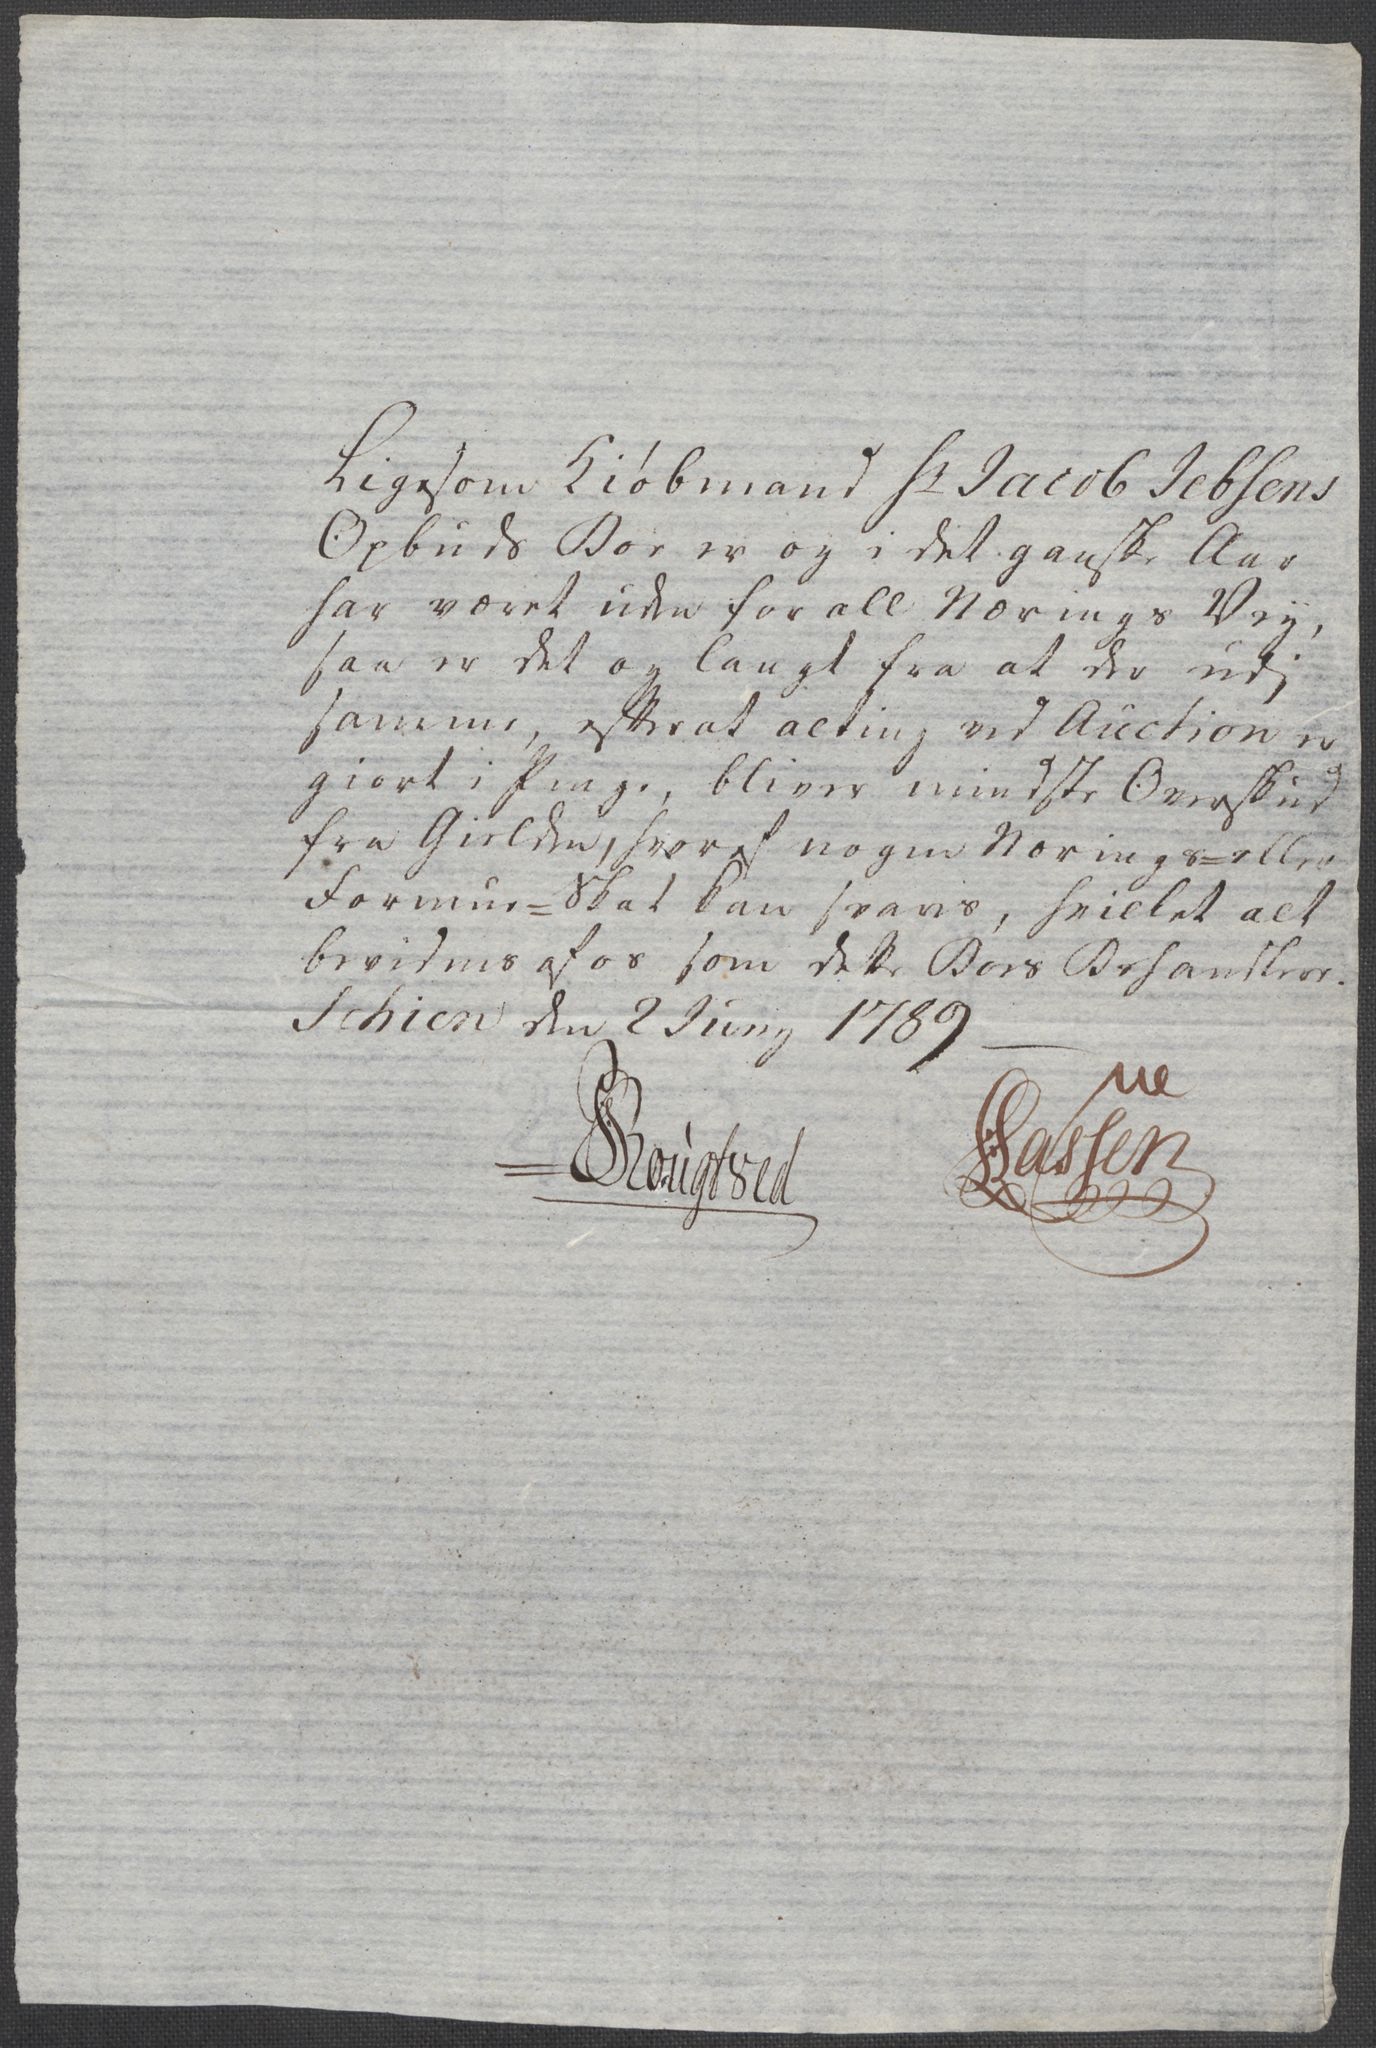 Ligesom Kiøbmand Sr Jacob Jebsens
Opbuds Boe er og i det ganske Aar
har været uden for all Nærings Vey,
saa er det og langt fra at der udj
samme, efterat alting ved Auction er
giort i Penge, bliver mindste Overskud
fra Gielden, hvoraf nogen Nærings= eller
Formue=Skat kan svares, hvilket alt
bevidnes af os som dette Boes Behandlere.
Schien den 2 Juny 1789
Rougtved